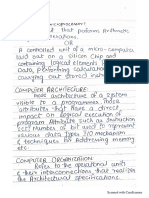 that performs Arithmetic
operations.
OR
A controlled unit of a micro-computer
laid out on a Silicon Chip and
containing logical elements for
Data, performing calculations and
carrying out stored instructions.
COMPUTER ARCHITECTURE:
Those architecture of a system
visible to a programmer. Those
attributes that have a direct
impact on logical execution of
program. Attribute such as Instruction
Set, Number of bit used to represent
various data types, I/O mechanism
& techniques for Addressing memory
etc
COMPUTER ORGANIZATION
Refers to the operational units
& their interconnections that realizes
the Architectural specifications.
Scanned with CamScanner